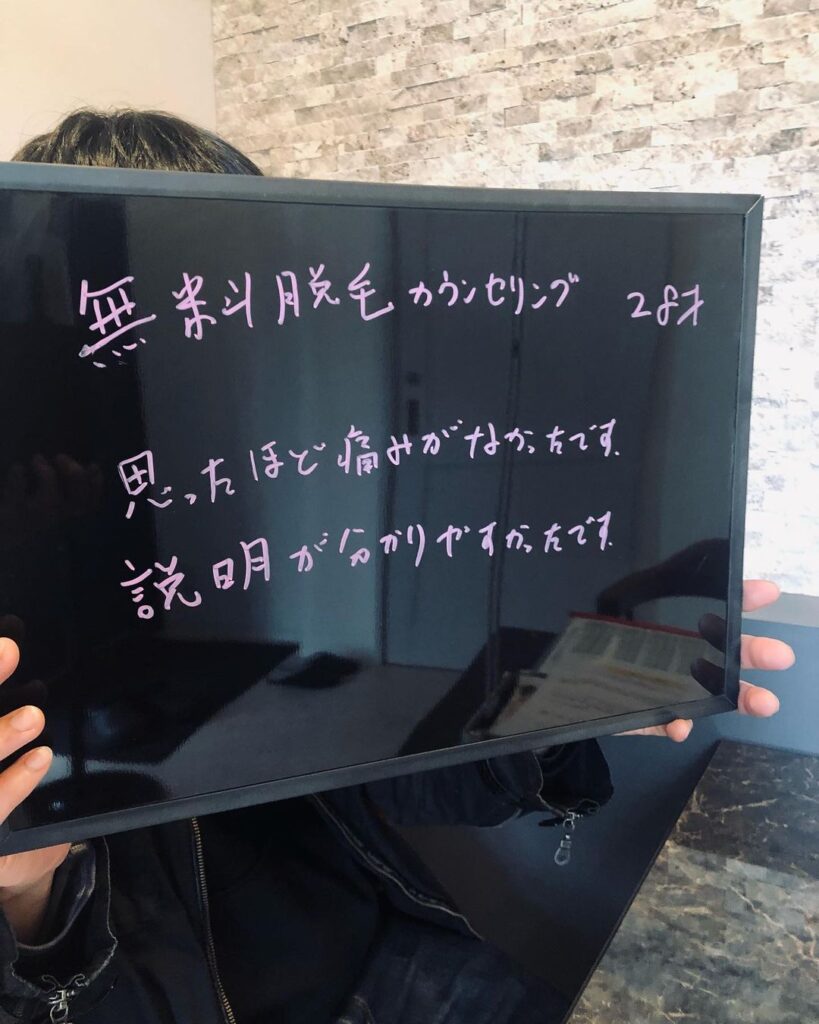 無料脱毛カウンセリング 28才
思ったほど痛みがなかったです.
説明が分かりやすかったです.